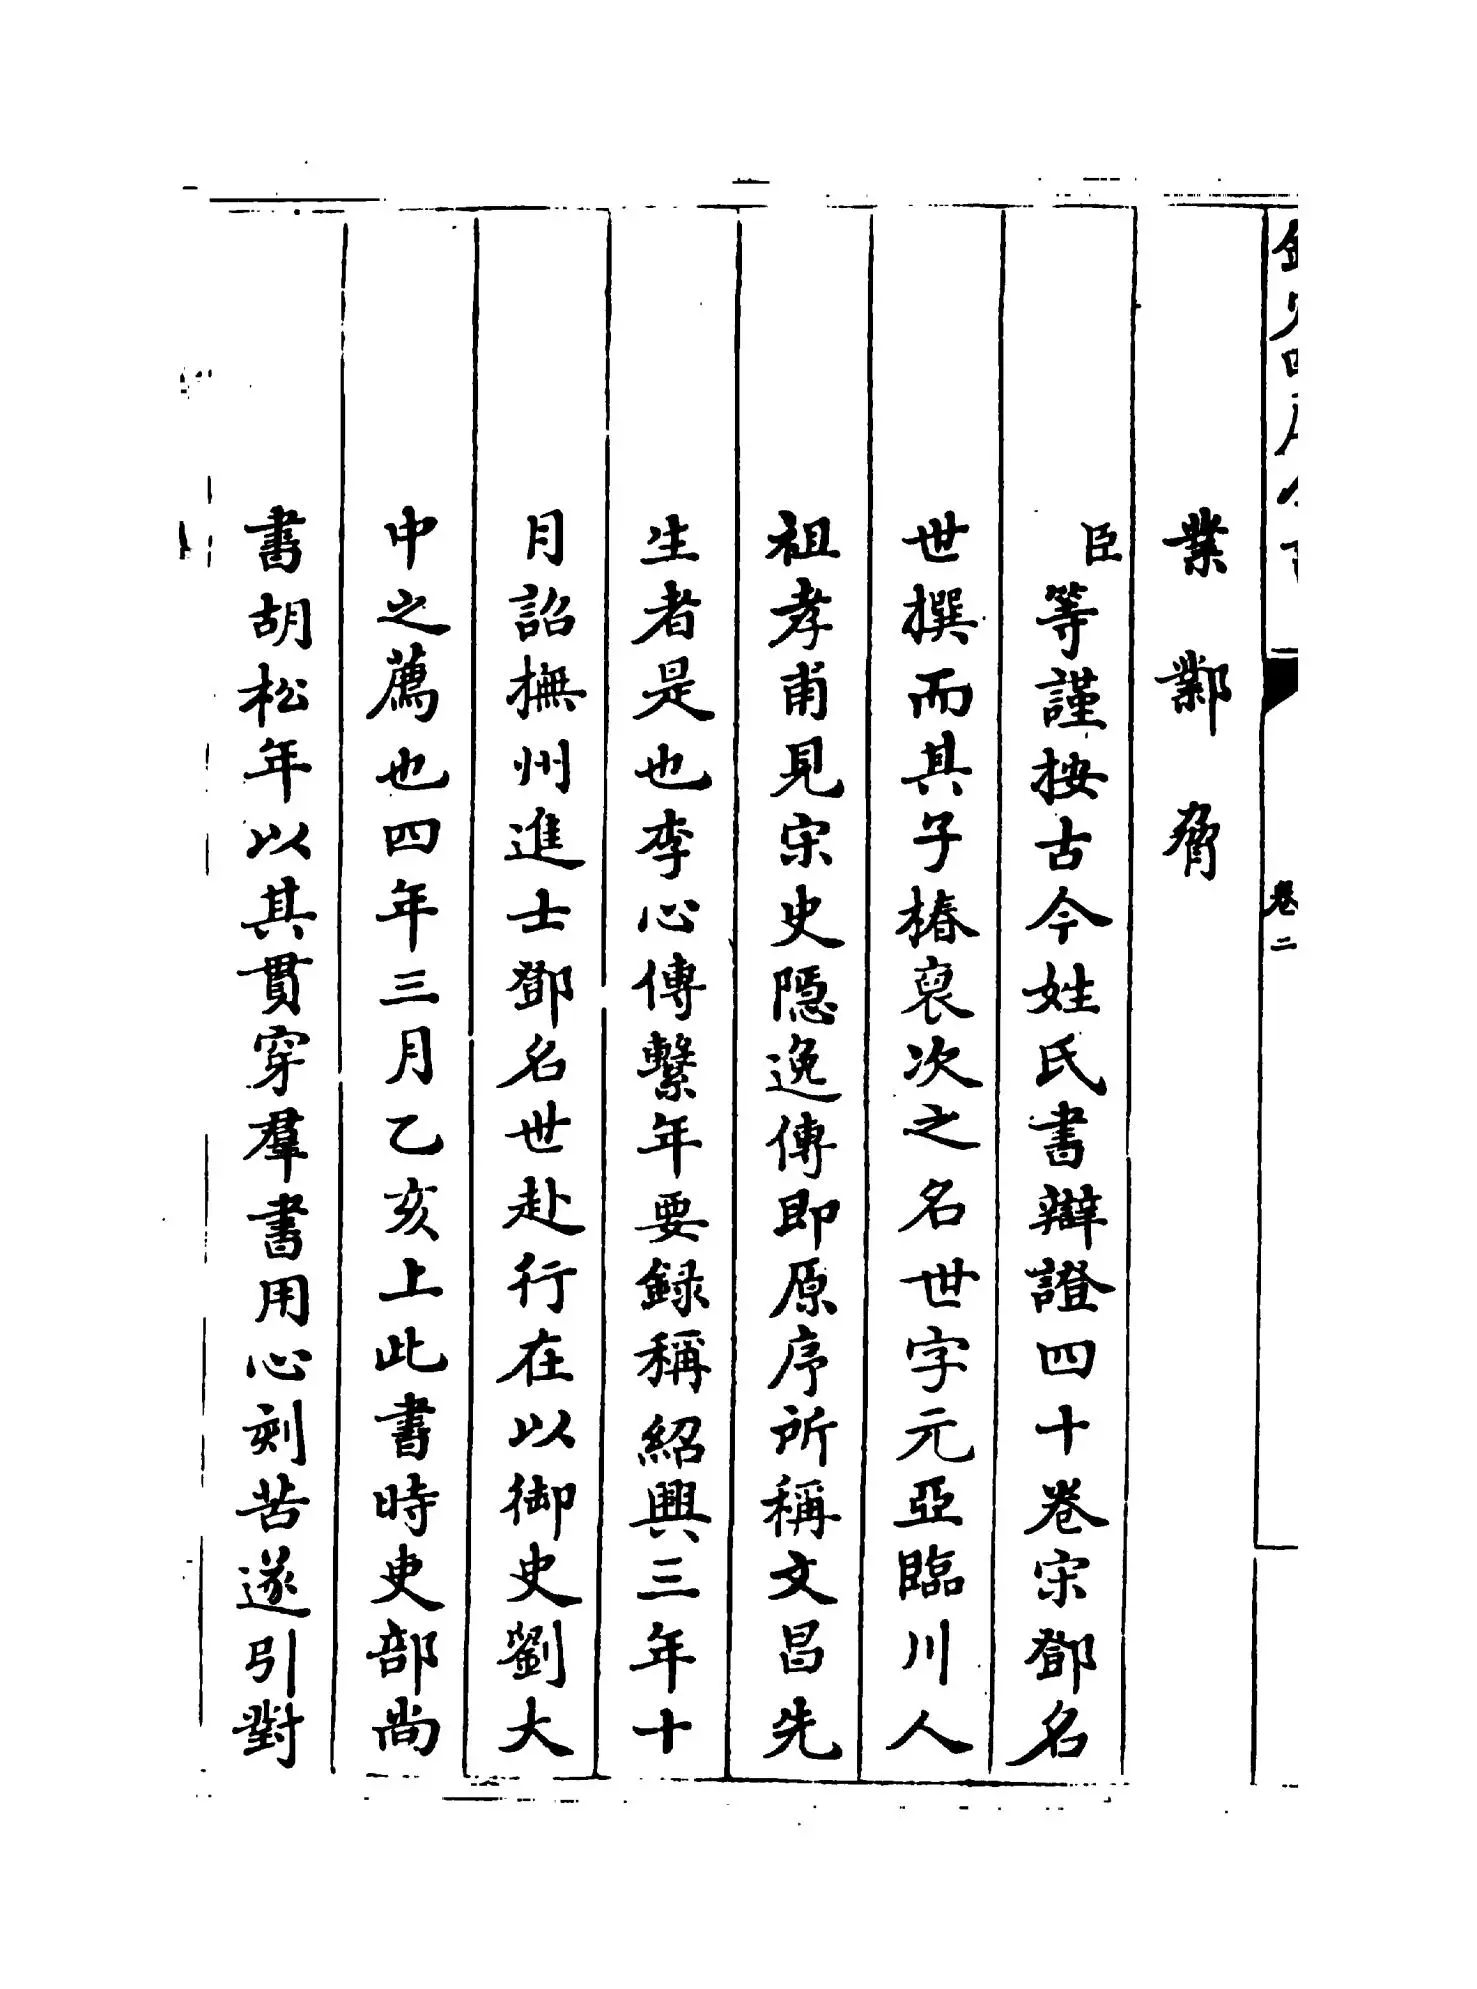 欽定四庫全書 卷二
業 鄴 胥
臣等謹按古今姓氏書辯證四十卷宋鄧名
世撰而其子椿裒次之名世字元亞臨川人
祖孝甫見宋史隱逸傳即原序所稱文昌先
生者是也李心傳繫年要録稱紹興三年十
月詔撫州進士鄧名世赴行在以御史劉大
中之薦也四年三月乙亥上此書時吏部尚
書胡松年以其貫穿羣書用心刻苦遂引對